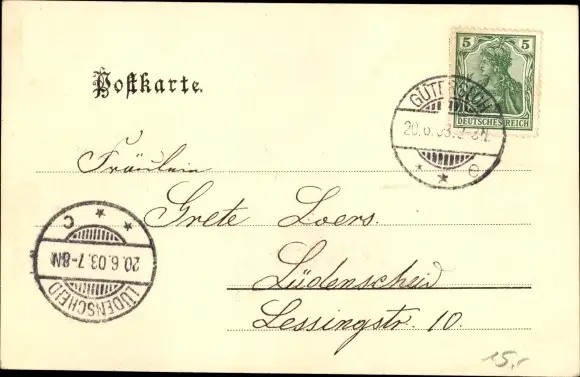 Postkarte.
5 5
DEUTSCHES REICH
20.6.03.
Fräulein
Grete Loers.
Lüdenscheid
Lessingstr. 10.
LÜDENSCHEID
20.6.03.7-8N
C
15,-